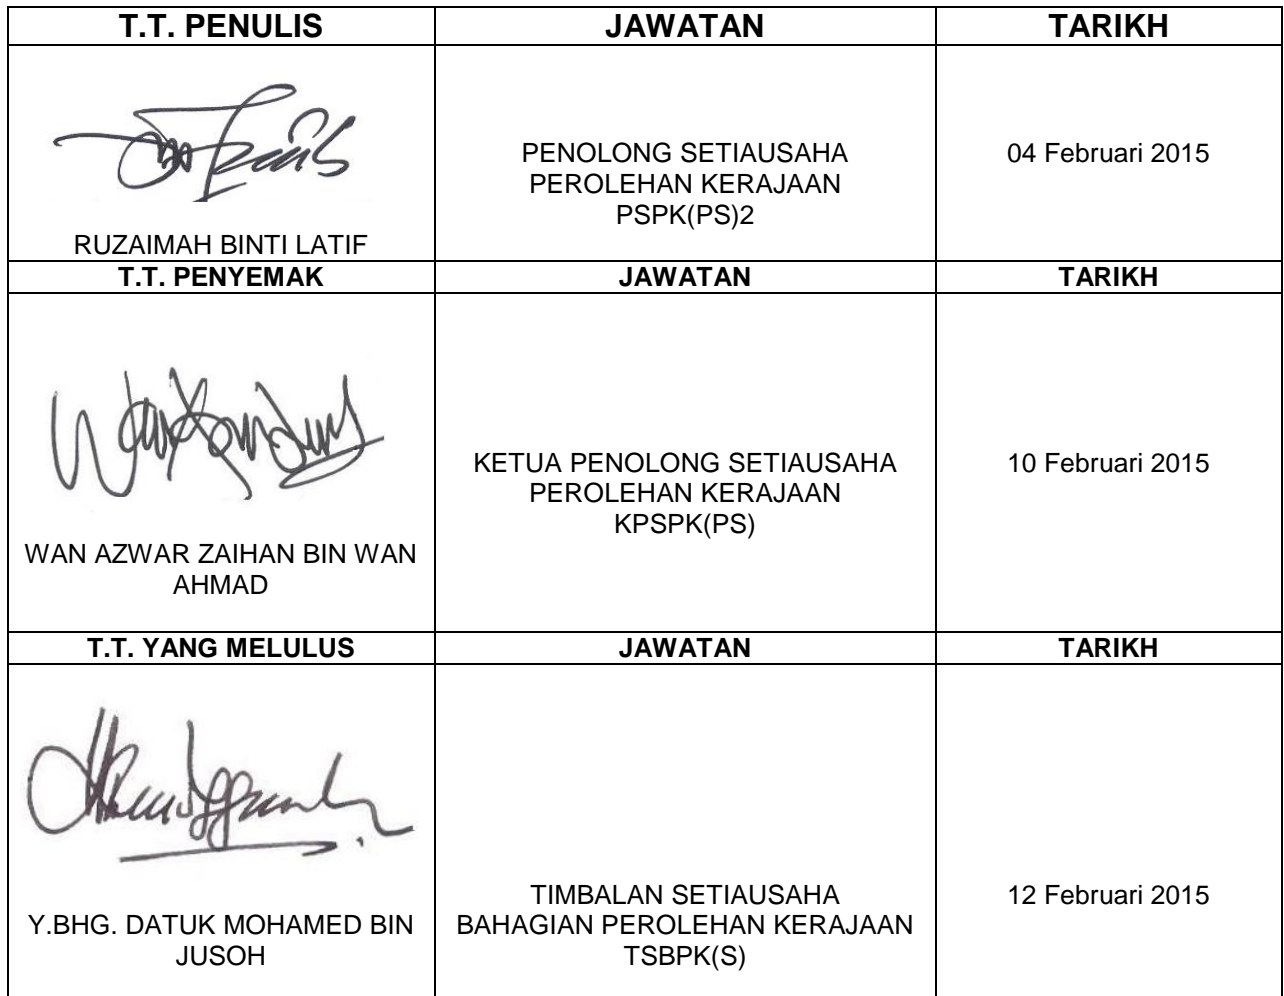 T.T. PENULIS JAWATAN TARIKH
RUZAIMAH BINTI LATIF
PENOLONG SETIAUSAHA
PEROLEHAN KERAJAAN
PSPK(PS)2
04 Februari 2015
T.T. PENYEMAK JAWATAN TARIKH
WAN AZWAR ZAIHAN BIN WAN
AHMAD
KETUA PENOLONG SETIAUSAHA
PEROLEHAN KERAJAAN
KPSPK(PS)
10 Februari 2015
T.T. YANG MELULUS JAWATAN TARIKH
Y.BHG. DATUK MOHAMED BIN
JUSOH
TIMBALAN SETIAUSAHA
BAHAGIAN PEROLEHAN KERAJAAN
TSBPK(S)
12 Februari 2015